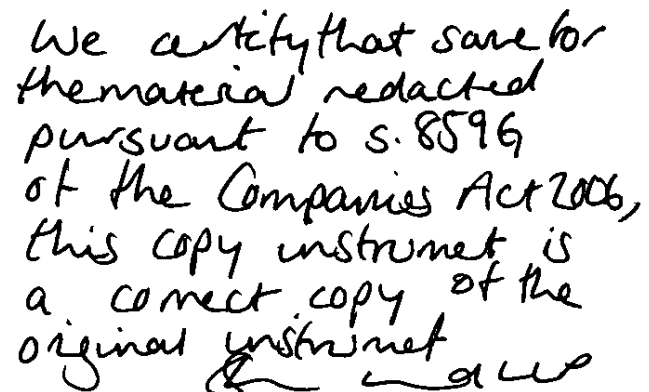 We certify that save for
the material redacted
pursuant to s.859G
of the Companies Act 2006,
this copy instrumet is
a correct copy of the
original instrumet